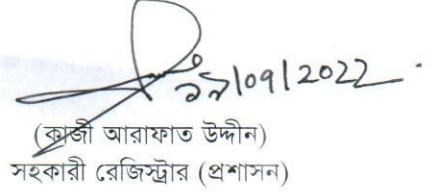 ১৯/০৭/2022
(কাজী আরাফাত উদ্দীন)
সহকারী রেজিস্ট্রার (প্রশাসন)